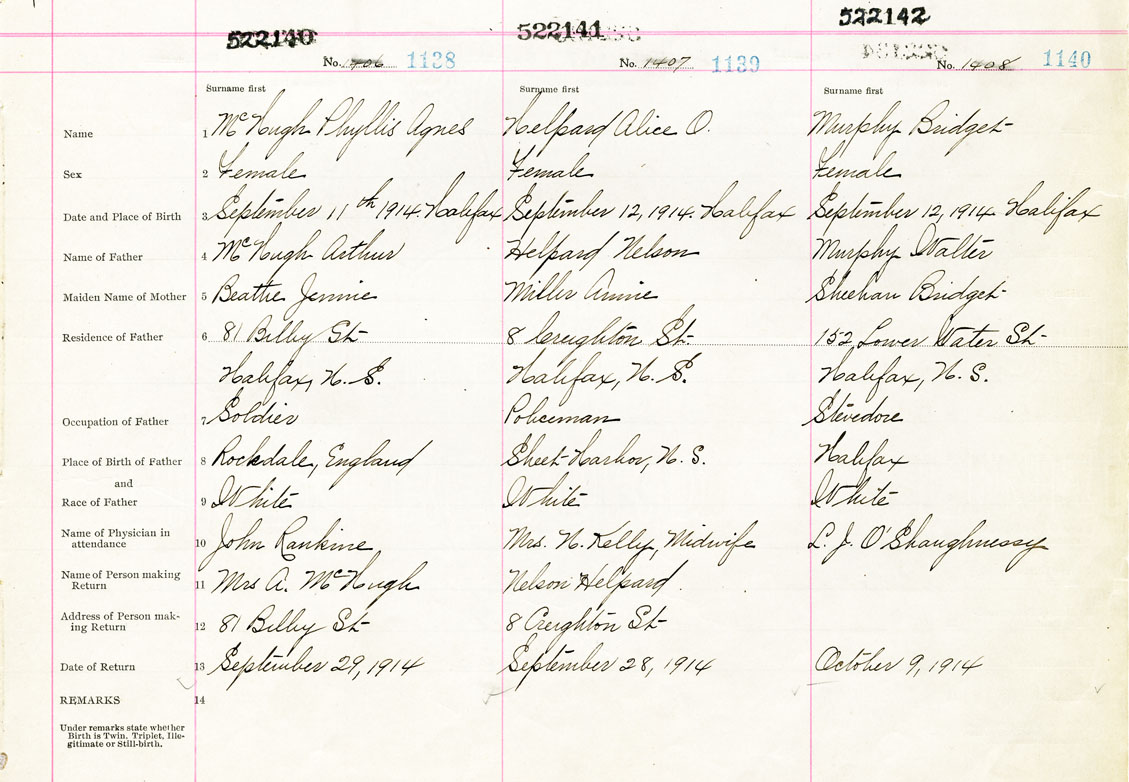 522140 522141 522142
No. 1406 1138 No. 1407 1139 No. 1408 1140
Surname first Surname first Surname first
Name 1 McHugh Phyllis Agnes Helpard Alice O. Murphy Bridget
Sex 2 Female Female Female
Date and Place of Birth 3 September 11th 1914. Halifax September 12, 1914. Halifax September 12, 1914. Halifax
Name of Father 4 McHugh Arthur Helpard Nelson Murphy Walter
Maiden Name of Mother 5 Beattie Jennie Miller Annie Sheehan Bridget
Residence of Father 6 81 Bilby St 8 Creighton St. 152 Lower Water St
Halifax, N. S. Halifax, N. S. Halifax, N. S.
Occupation of Father 7 Soldier Policeman Stevedore
Place of Birth of Father 8 Rockdale, England Sheet Harbor, N. S. Halifax
and
Race of Father 9 White White White
Name of Physician in
attendance 10 John Rankine Mrs. N. Kelly, Midwife L. J. O'Shaughnessy
Name of Person making
Return 11 Mrs A. McHugh Nelson Helpard
Address of Person mak-
ing Return 12 81 Bilby St 8 Creighton St
Date of Return 13 September 29, 1914 September 28, 1914 October 9, 1914
REMARKS 14
Under remarks state whether
Birth is Twin, Triplet, Ille-
gitimate or Still-birth.